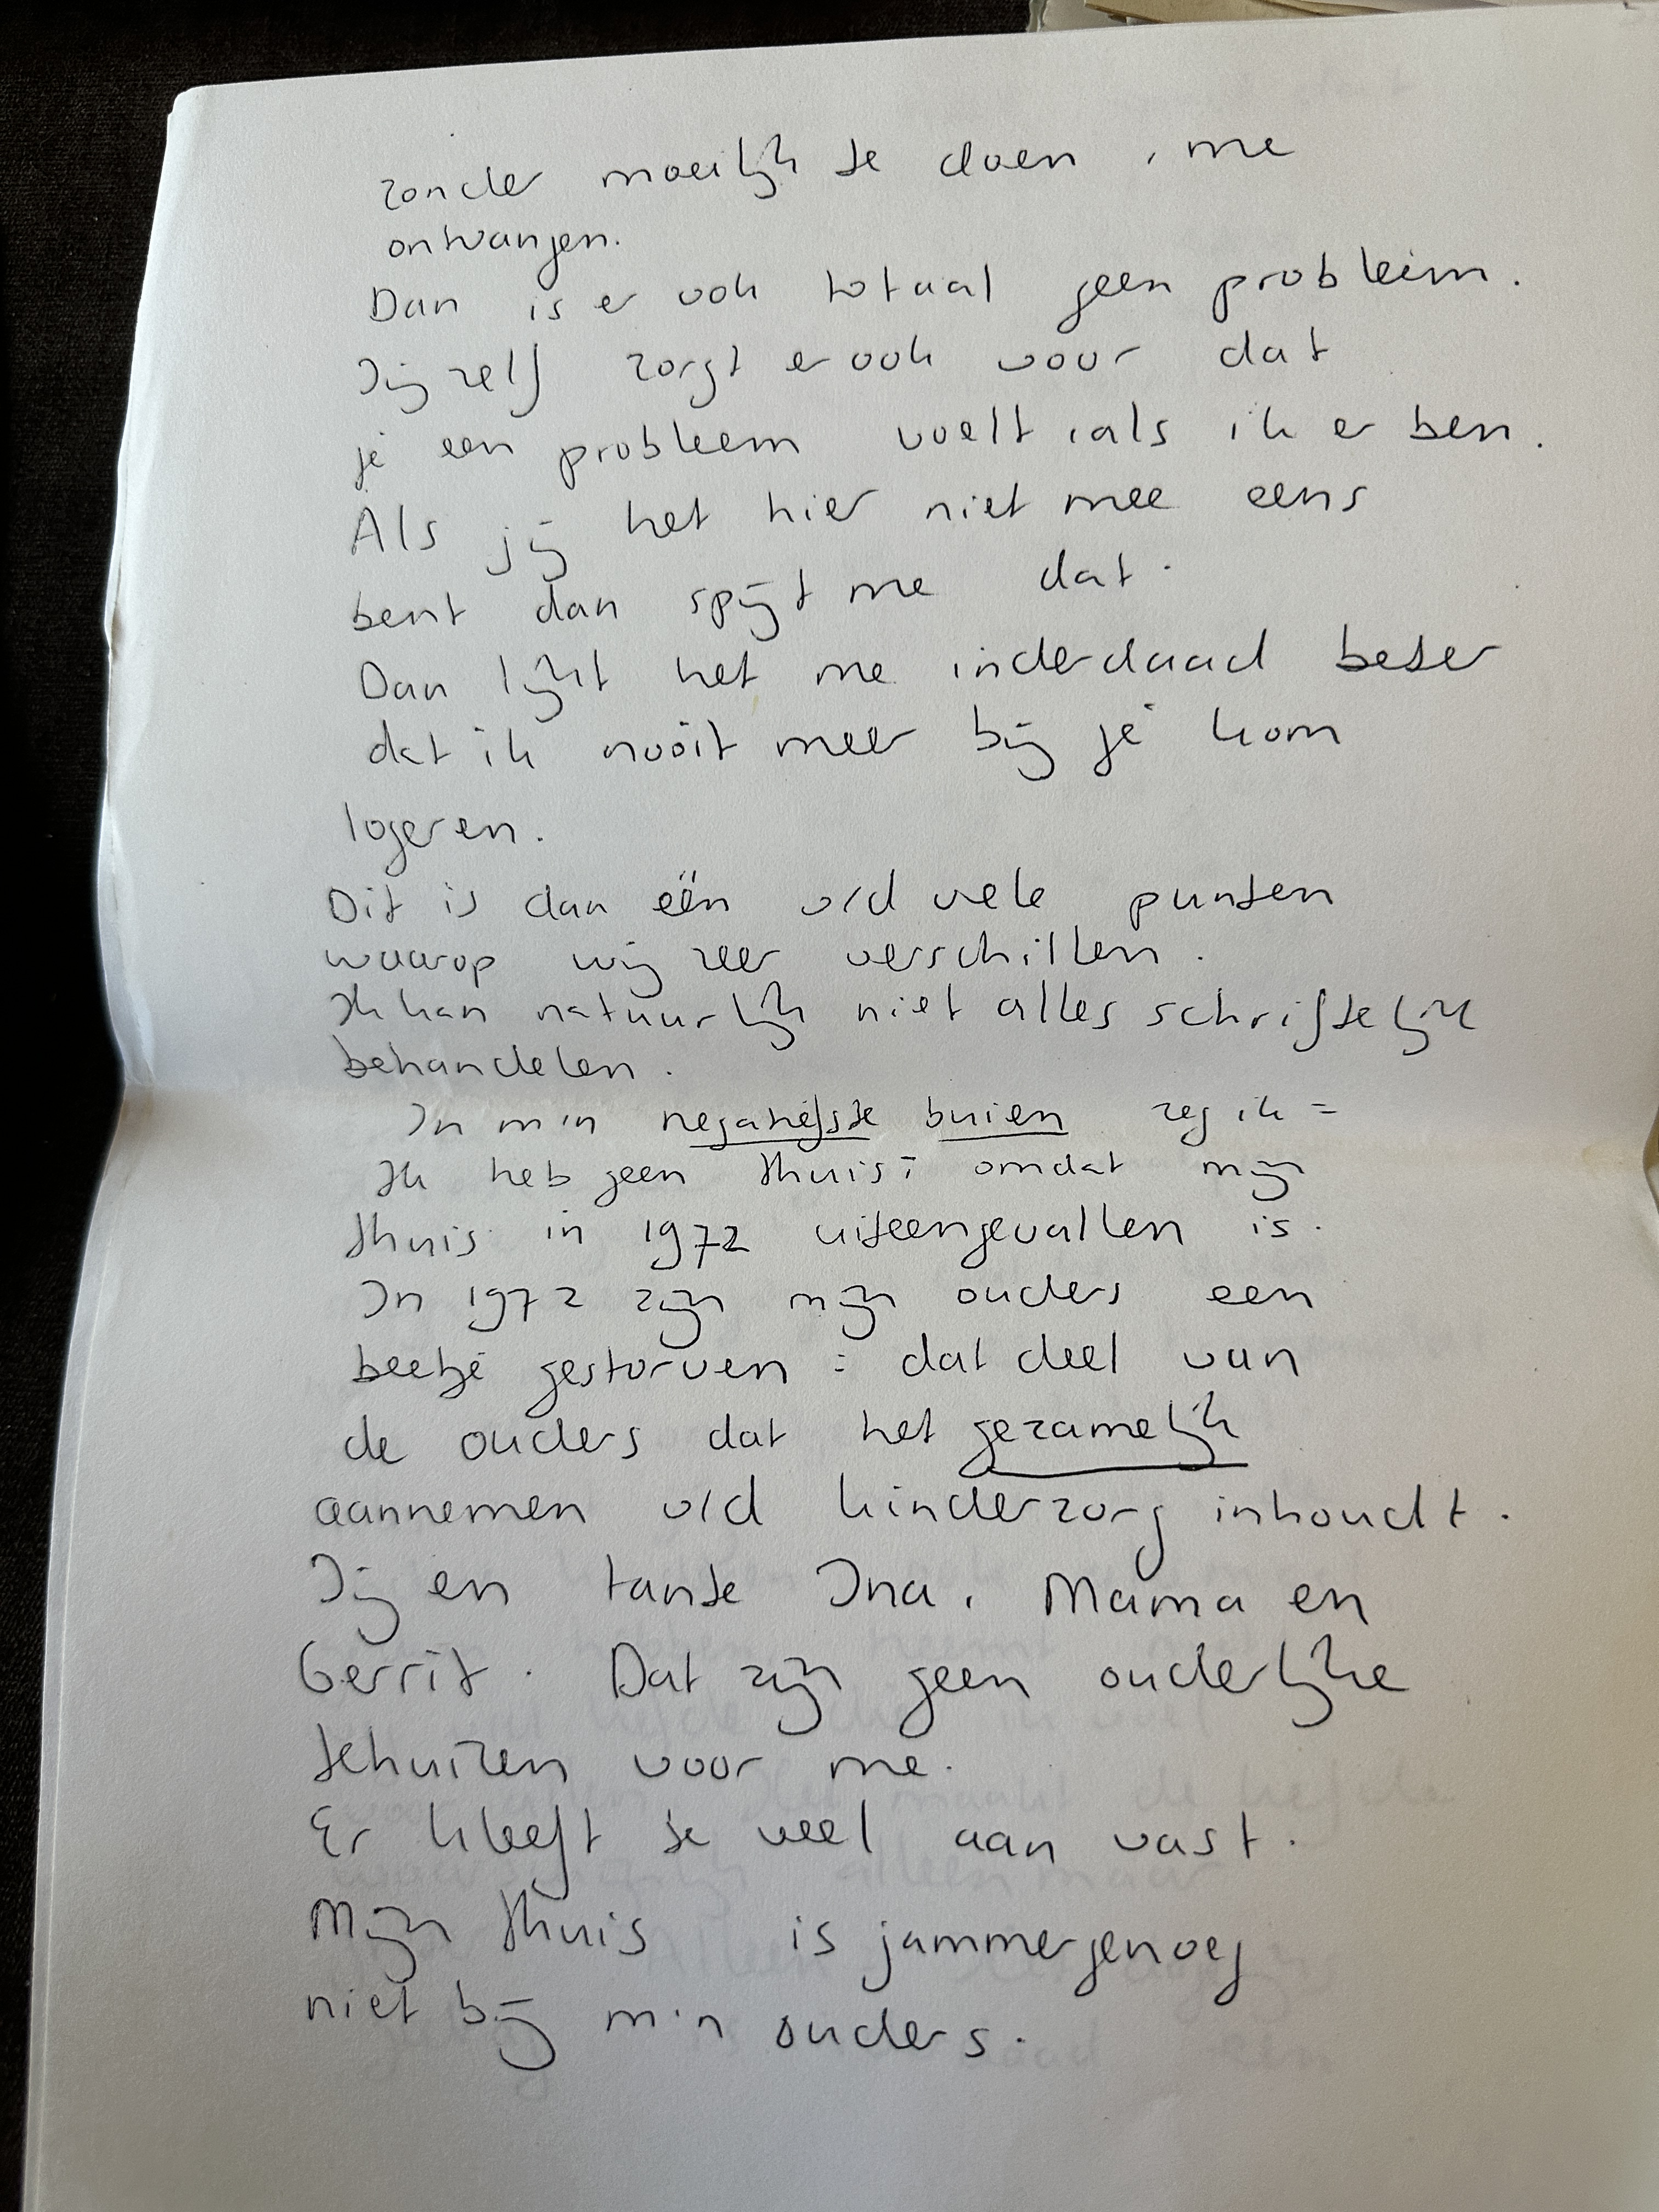 zonder moeilijk te doen, me
ontvangen.
Dan is er ook totaal geen probleem.
Jij zelf zorgt er ook voor dat
je een probleem voelt, als ik er ben.
Als jij het hier niet mee eens
bent dan spijt me dat.
Dan lijkt het me inderdaad beter
dat ik nooit meer bij je kom
logeren.
Dit is dan één v/d vele punten
waarop wij zeer verschillen.
Ik kan natuurlijk niet alles schriftelijk
behandelen.
In m'n negatiefste buien zeg ik =
Ik heb geen thuis; omdat mijn
thuis in 1972 uiteengevallen is.
In 1972 zijn mijn ouders een
beetje gestorven = dat deel van
de ouders dat het gezamelijk
aannemen v/d kinderzorg inhoudt.
Jij en tante Ina, Mama en
Gerrit. Dat zijn geen ouderlijke
tehuizen voor me.
Er kleeft te veel aan vast.
Mijn thuis is jammergenoeg
niet bij m'n ouders.